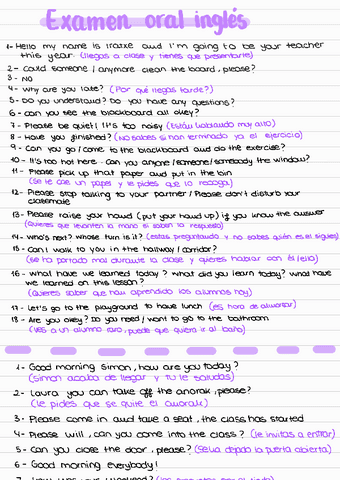 Examen oral inglés
1- Hello my name is Iratxe and I'm going to be your teacher
this year. (llegas a clase y tienes que presentarte)
2- Could someone / anymore clean the board, please?
3- NO
4- Why are you late? (Por qué llegas tarde?)
5- Do you understand? Do you have any questions?
6- Can you see the blackboard all okey?
7- Please be quiet! It's too noisy (Están hablando muy alto)
8- Have you finished? (NO sabes si han terminado ya el ejercicio)
9- Can you go / come to the blackboard and do the exercise?
10- It's too hot here. Can you anyone/someone/somebody the window?
11- Please pick up that paper and put in the bin
(se te cae un papel y le pides que lo recoga)
12- Please stop talking to your partner / Please don't disturb your
classmate
13- Please raise your hand (put your hand up) if you know the answer
(quieres que levanten la mano si saben la respuesta)
14- Who's next? Whose turn is it? (estas preguntando y no sabes quién es el siguiente)
15- Can I walk to you in the hallway / corridor?
(se ha portado mal durante la clase y quieres hablar con él/ella)
16- What have we learned today? What did you learn today? What have
we learned on this lesson?
(quieres saber que han aprendido los alumnos hoy)
17- Let's go to the playground to have lunch (es hora de almorzar)
18- Are you okey? Do you need / want to go to the bathroom
(ves a un alumno raro, puede que quiera ir al baño)
1- Good morning Simon, how are you today?
(Simon acaba de llegar y tu le saludas)
2- Laura you can take off the anorak, please?
(le pides que se quite el anorak)
3- Please come in and take a seat, the class has started
4- Please Will, can you come into the class? (le invitas a entrar)
5- Can you close the door, please? (Se ha dejado la puerta abierta)
6- Good morning everybody!